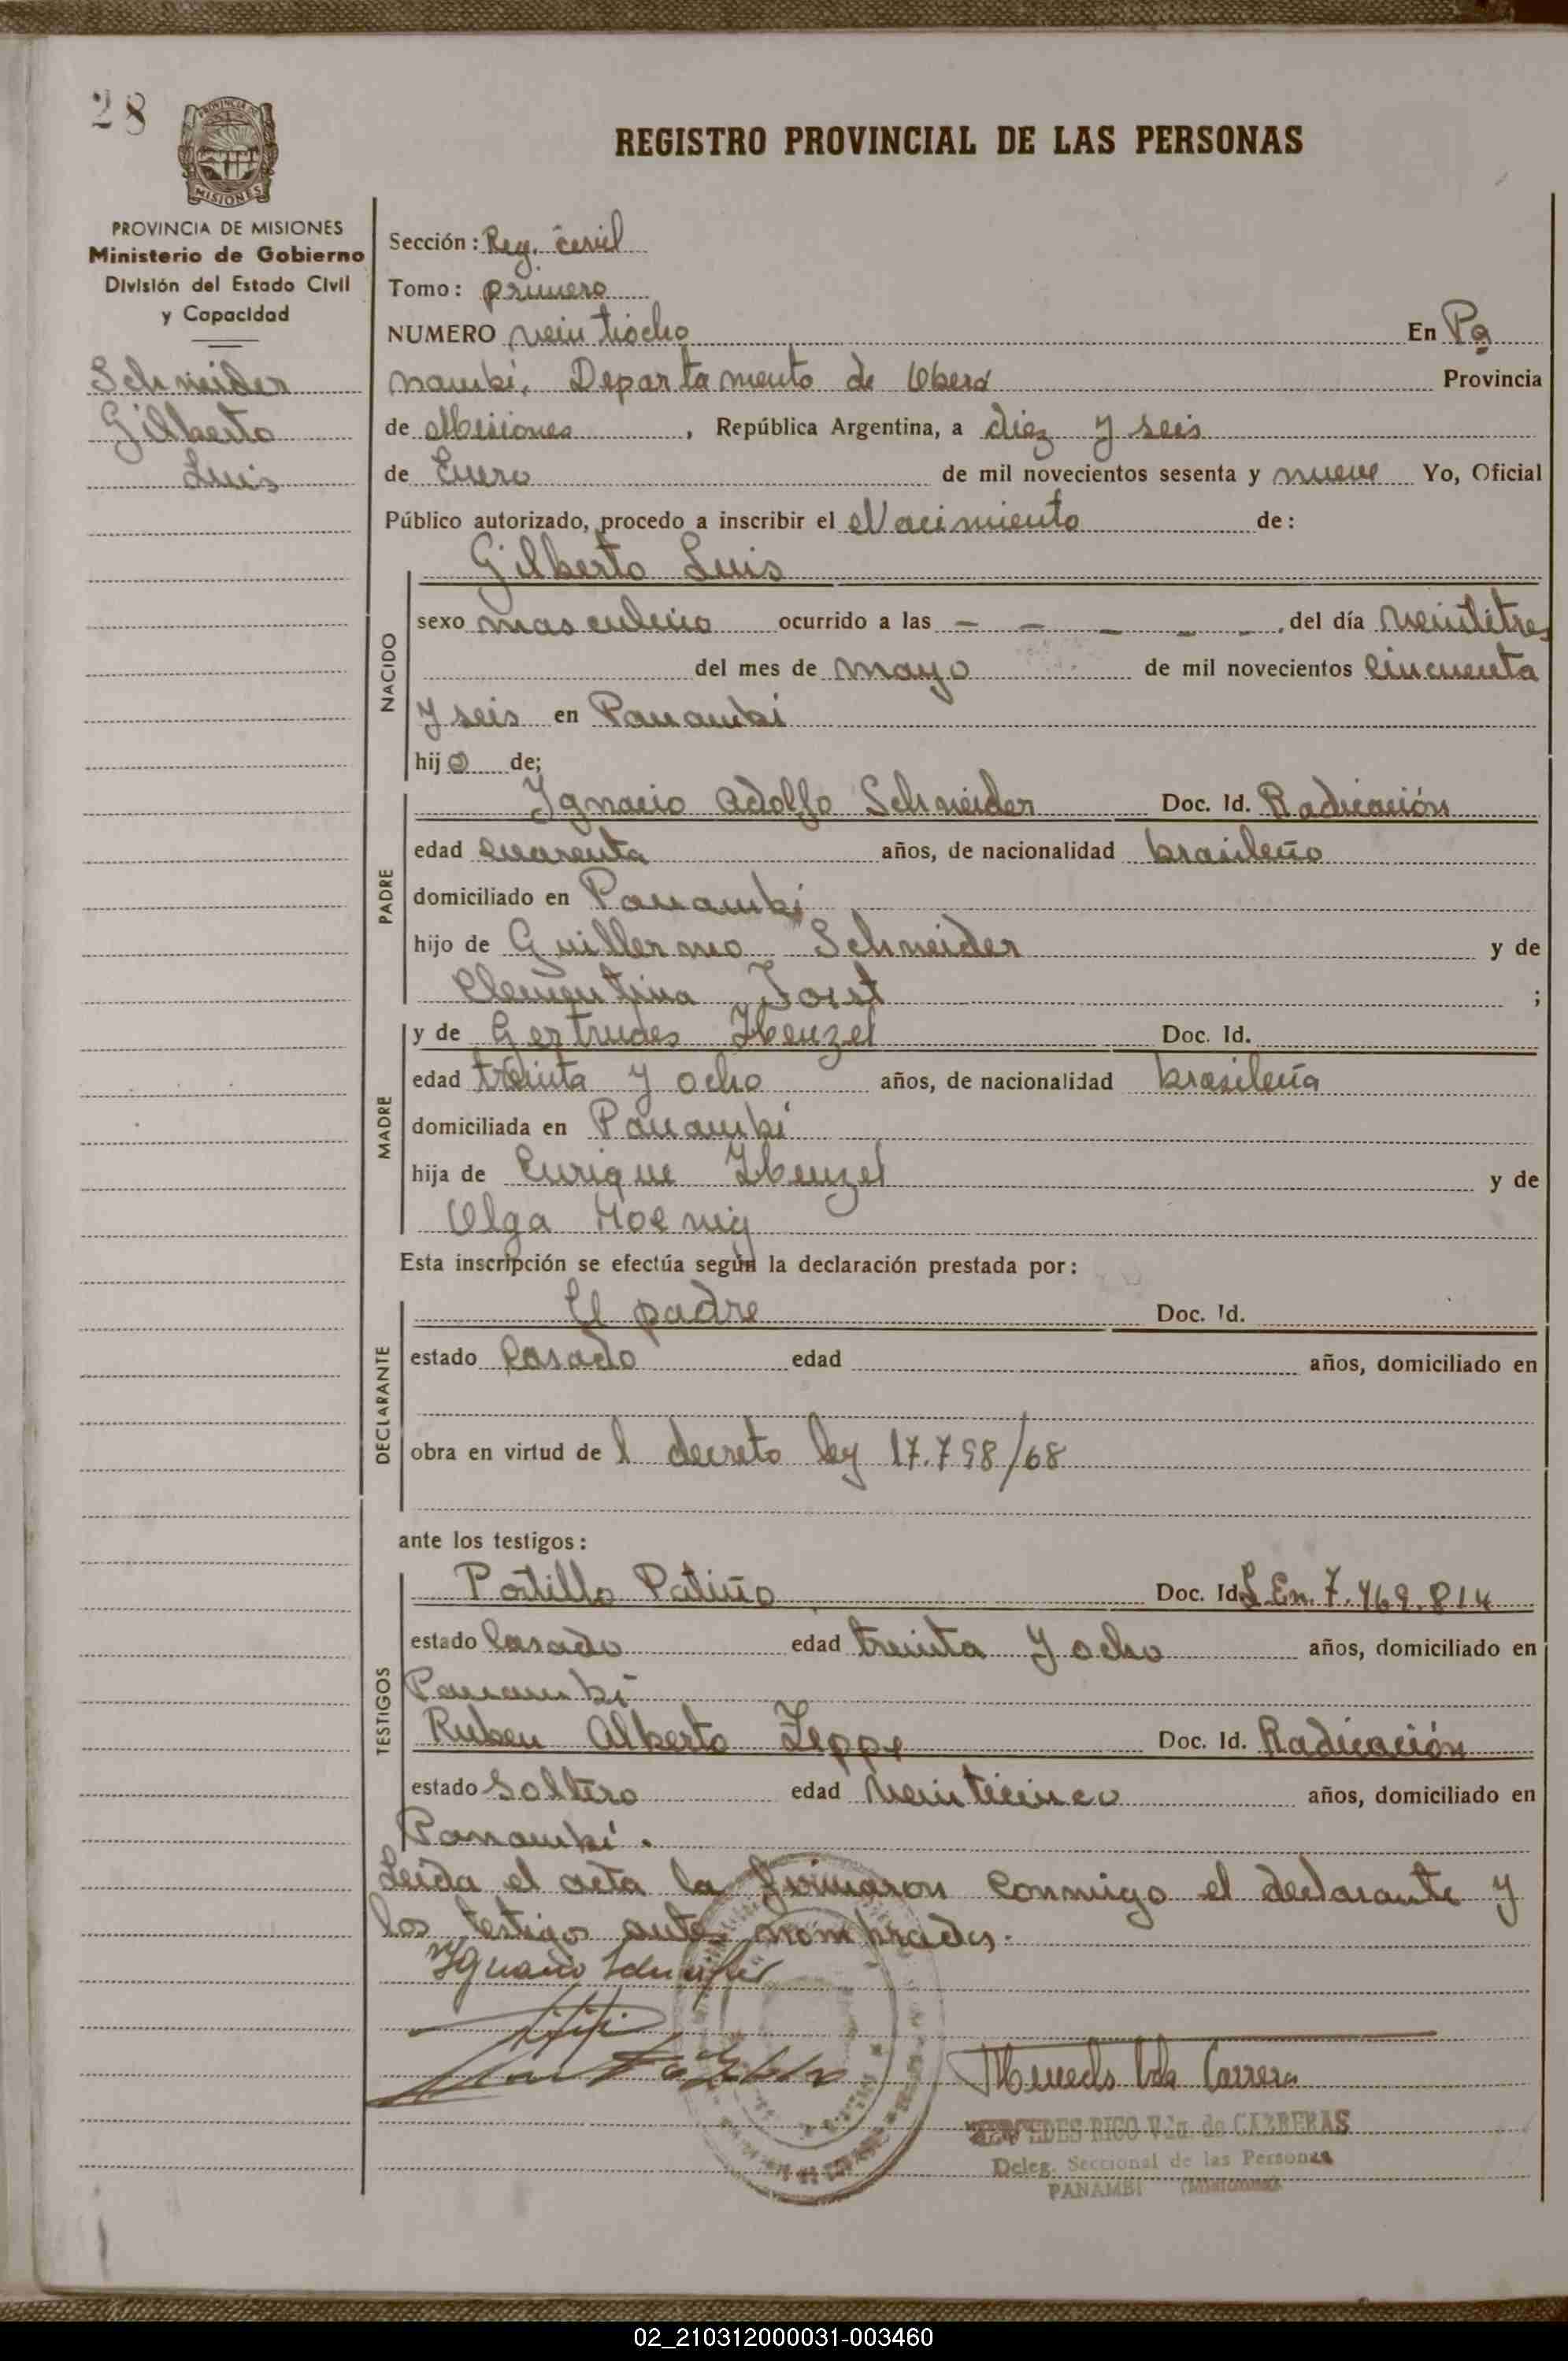 28
REGISTRO PROVINCIAL DE LAS PERSONAS
PROVINCIA DE
MISIONES
PROVINCIA DE MISIONES
Ministerio de Gobierno
División del Estado Civil
y Capacidad
Schneider
Gilberto
Luis
Sección: Reg. civil
Tomo: primero
NUMERO veintiocho En Pa
nambí, Departamento de Oberá Provincia
de Misiones, República Argentina, a diez y seis
de Enero de mil novecientos sesenta y nueve Yo, Oficial
Público autorizado, procedo a inscribir el Nacimiento de:
Gilberto Luis
NACIDO
sexo masculino ocurrido a las - - - - -, del día veintitres
del mes de mayo de mil novecientos cincuenta
y seis en Panambí
hijo de;
PADRE
Ignacio Adolfo Schneider Doc. Id. Radicación
edad cuarenta años, de nacionalidad brasileño
domiciliado en Panambí
hijo de Guillermo Schneider y de
Clementina Jorst ;
MADRE
y de Gertrudes Doc. Id.
edad treinta y ocho años, de nacionalidad brasileña
domiciliada en Panambí
hija de Enrique y de
Olga Hoenig
Esta inscripción se efectúa según la declaración prestada por:
DECLARANTE
El padre Doc. Id.
estado Casado edad años, domiciliado en
obra en virtud de l decreto ley 17.798/68
ante los testigos:
TESTIGOS
Portillo Patiño Doc. Id. L.En. 7.469.814
estado Casado edad treinta y ocho años, domiciliado en
Panambí
Ruben Alberto Zeppe Doc. Id. Radicación
estado Soltero edad veinticinco años, domiciliado en
Panambí.
Leida el acta la firmaron conmigo el declarante y
los testigos antes nombrados.
Ignacio Schneider
Mercedes Vda Carrera
MERCEDES RICO Vda. de CARRERAS
Deleg. Seccional de las Personas
PANAMBI (Misiones)
02_210312000031-003460